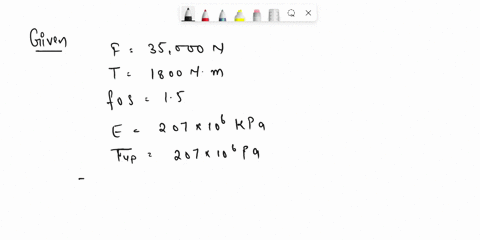 Given
F = 35,000 N
T = 1800 N·m
fos = 1.5
E = 207 × 10⁶ KPa
= 207 × 10⁶ Pa